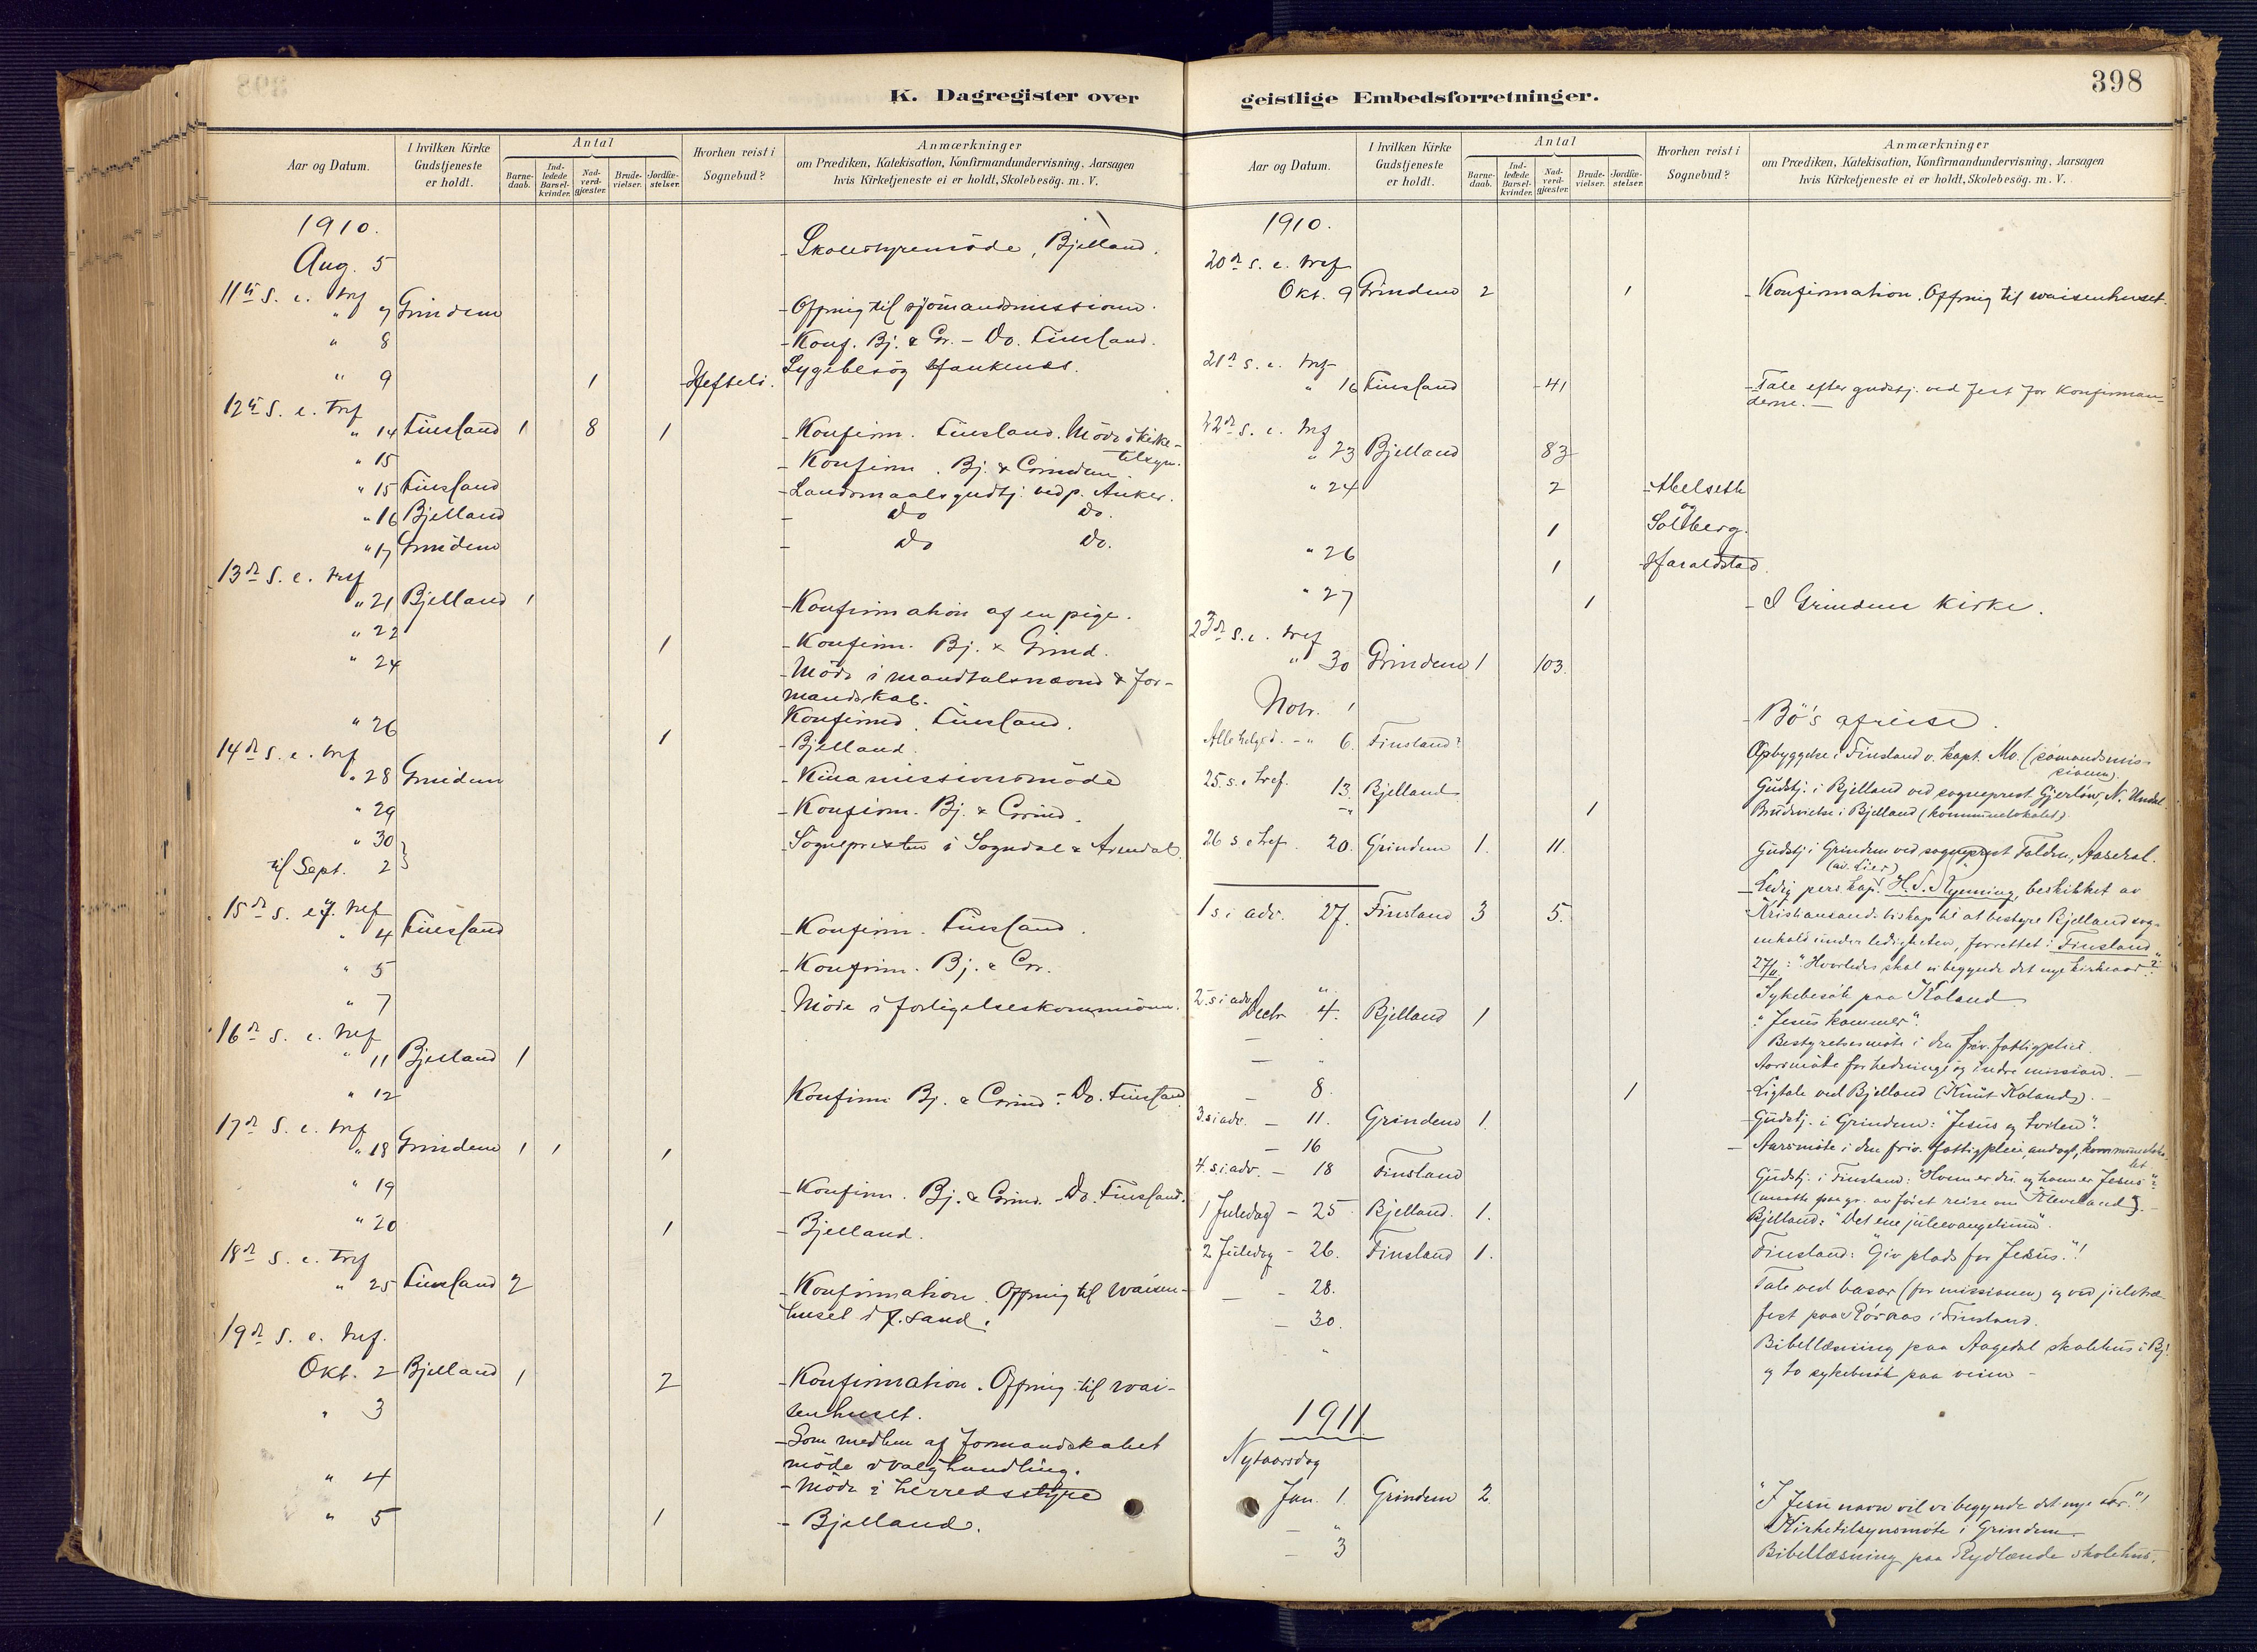 398
K. Dagregister over geistlige Embedsforretninger.
Aar og Datum.
I hvilken Kirke Gudstjeneste er holdt.
Antal
Barne-daab.
Ind-ledede Barsel-kvinder.
Nad-verd-gjæster.
Brude-vielser.
Jordfæ-stelser.
Hvorhen reist i Sognebud?
Anmærkninger
om Prædiken, Katekisation, Konfirmandundervisning, Aarsagen
hvis Kirketjeneste ei er holdt, Skolebesög. m. V.
1910.
Aug. 5 Skolestyremöde, Bjelland.
11te S. e. tref
" 7 Grindem - Offring til sjömandsmissionen.
" 8 - Konf. Bj. & Gr. - Do. Finsland.
" 9 1 Heftelö. Sygebesög
12te S. e. Tref
" 14 Finsland 1 8 1 - Konfirm. Finsland. Möde i kirke-
tilsyn.
" 15 - Konfirm. Bj. & Grindem
" 15 Finsland - Landsmaalsgudtj. ved p. Anker.
" 16 Bjelland - Do Do.
" 17 Grindem - Do Do.
13de S. e. tref
" 21 Bjelland 1 - Konfirmation af en pige.
" 22 1 - Konfirm. Bj. & Grind.
" 24 - Möde i mandtalsnævnd & for-
mandskab.
" 26 Konfirmd. Finsland.
1 - Bjelland.
14de S. e. tref
" 28 Grindem - Kinamissionsmöde
" 29 - Konfirm. Bj. & Grind.
" 30
til Sept. 2 } - Sogneprester i Sogndal & Arendal.
15de S. ef. tref
" 4 Finsland - Konfirm. Finsland.
" 5 - Konfirm. Bj. & Gr.
" 7 - Möde i forligelseskommission.
16de S. e. tref
" 11 Bjelland 1
" 12 Konfirm Bj. & Grind - Do. Finsland
17de S. e. tref
" 18 Grindem 1 1 1
" 19 - Konfirm. Bj. & Grind. - Do. Finsland.
" 20 1 - Bjelland.
18de S. e. Tref
" 25 Finsland 2 - Konfirmation. Offring til Waisen-
huset i K.sand.
19de S. e. tref.
Okt. 2 Bjelland 1 2 - Konfirmation. Offring til wai-
senhuset.
" 3 - Som medlem af formandskabet
möde i valghandling.
" 4 - Möde i herredsstyre
" 5 1 - Bjelland.
Aar og Datum.
I hvilken Kirke Gudstjeneste er holdt.
Antal
Barne-daab.
Ind-ledede Barsel-kvinder.
Nad-verd-gjæster.
Brude-vielser.
Jordfæ-stelser.
Hvorhen reist i Sognebud?
Anmærkninger
om Prædiken, Katekisation, Konfirmandundervisning, Aarsagen
hvis Kirketjeneste ei er holdt, Skolebesög. m. V.
1910.
20de S. e. tref
Okt. 9 Grindem 2 1 - Konfirmation. Offring til waisenhuset.
21de S. e. tref
" 16 Finsland 41 - Tale efter gudstj. ved fest for konfirman-
derne. -
22de S. e. tref
" 23 Bjelland 83
" 24 2 - Abelseth
og
1 Solberg.
" 26 1 - Haraldstad.
" 27 1 - I Grindem Kirke.
23de S. e. tref
" 30 Grindem 1 103
Novr. 1 - Bö's afreise.
Allehelgsd. - " 6. Finsland? Opbyggelse i Finsland v. kapt. Mo. (sömandsmis-
sionen).
25. s. e. tref. 13. Bjelland Gudstj: i Bjelland ved sogneprest Gjerlöw, N. Undal.
- " 1 Brudevielse i Bjelland (kommunelokalet).
26 s e tref. 20. Grindem 1. 11. Gudstj i Grindem ved sogneprest Falden, Aaseral.
(av. Lier)
- Ledig pers. kap. H. S. Nyenning, beskikket av
1 s i adv. 27. Finsland 3 5. Kristiansands biskop til at bestyre Bjelland sog-
nekald under ledigheten, forrettet i Finsland
27/11: "Hvorledes skal vi begynde det nye kirkeaar"?
" Sykebesök paa Kaland
2. s i adv Decbr 4. Bjelland 1 : "Jesus kommer".
Bestyrelsesmöte i den friv. fattigpleie.
Aarsmöte for hedning og indre mission. -
- 8. 1 - Ligtale ved Bjelland (Knut Kaland). -
3. s i adv. - 11. Grindem 1. Gudstj. i Grindem: "Jesus og tvilen".
- 16 - Aarsmöte i den friv. fattigpleie, andagt, kommuneloka-
let
4. s. i adv. - 18 Finsland Gudstj. i Finsland: "Hvem er du og hvem er Jesus"?
(maatte paa gr. av föret reise om Kleveland). -
1 Juledag - 25 Bjelland. 1. Bjelland: "Det ene juleevangelium".
2 Juledag - 26. Finsland 1. Finsland: "Giv plads for Jesus."!
- - 28. Tale ved basar (for missionen) og ved juletræ-
fest paa Rösnas i Finsland.
- 30. Bibellæsning paa Aagedal skolehus i Bj.
" og to sykebesök paa veien -
1911
Nytaarsdag
Jan. 1. Grindem 2. "I Jesu navn vil vi begynde det nye aar."!
- " Kirketilsynsmöte i Grindem
- 3 Bibellæsning paa Rydlende skolehus.